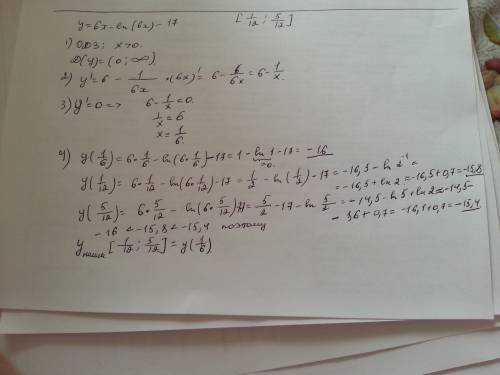 y=6x-ln(6x)-17 [1/12; 5/12]
1) ОДЗ: x>0.
D(y)=(0; ∞)
2) y'=6 - 1/6x · (6x)' = 6 - 6/6x = 6 - 1/x.
3) y'=0 => 6 - 1/x = 0.
1/x = 6
x = 1/6.
4) y(1/6) = 6·1/6 - ln(6·1/6) - 17 = 1 - ln 1 - 17 = -16
=0.
y(1/12) = 6·1/12 - ln(6·1/12) - 17 = 1/2 - ln(1/2) - 17 = -16,5 - ln 2⁻¹ =
= -16,5 + ln 2 ≈ -16,5 + 0,7 = -15,8
y(5/12) = 6·5/12 - ln(6·5/12) - 17 = 5/2 - 17 - ln 5/2 = -14,5 - ln 5 + ln 2 ≈ -14,5 -
- 1,6 + 0,7 = -16,1 + 0,7 = -15,4
-16 < -15,8 < -15,4 поэтому
y наим [1/12; 5/12] = y(1/6)